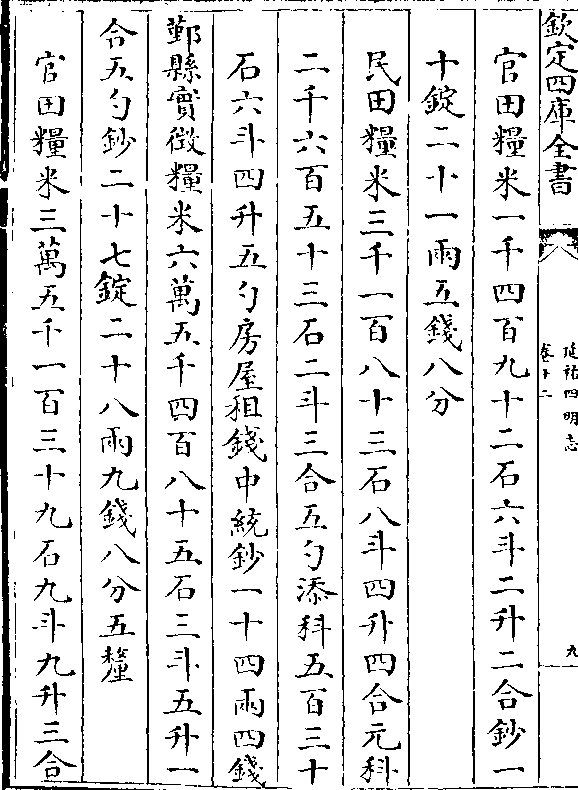 欽定四庫全書
延祐四明志
卷十二
九
官田糧米一千四百九十二石六斗二升二合鈔一
十錠二十一兩五錢八分
民田糧米三千一百八十三石八斗四升四合元科
二千六百五十三石二斗三合五勺添科五百三十
石六斗四升五勺房屋租錢中統鈔一十四兩四錢
鄞縣實徵糧米六萬五千四百八十五石三斗五升一
合五勺鈔二十七錠二十八兩九錢八分五釐
官田糧米三萬五千一百三十九石九斗九升三合